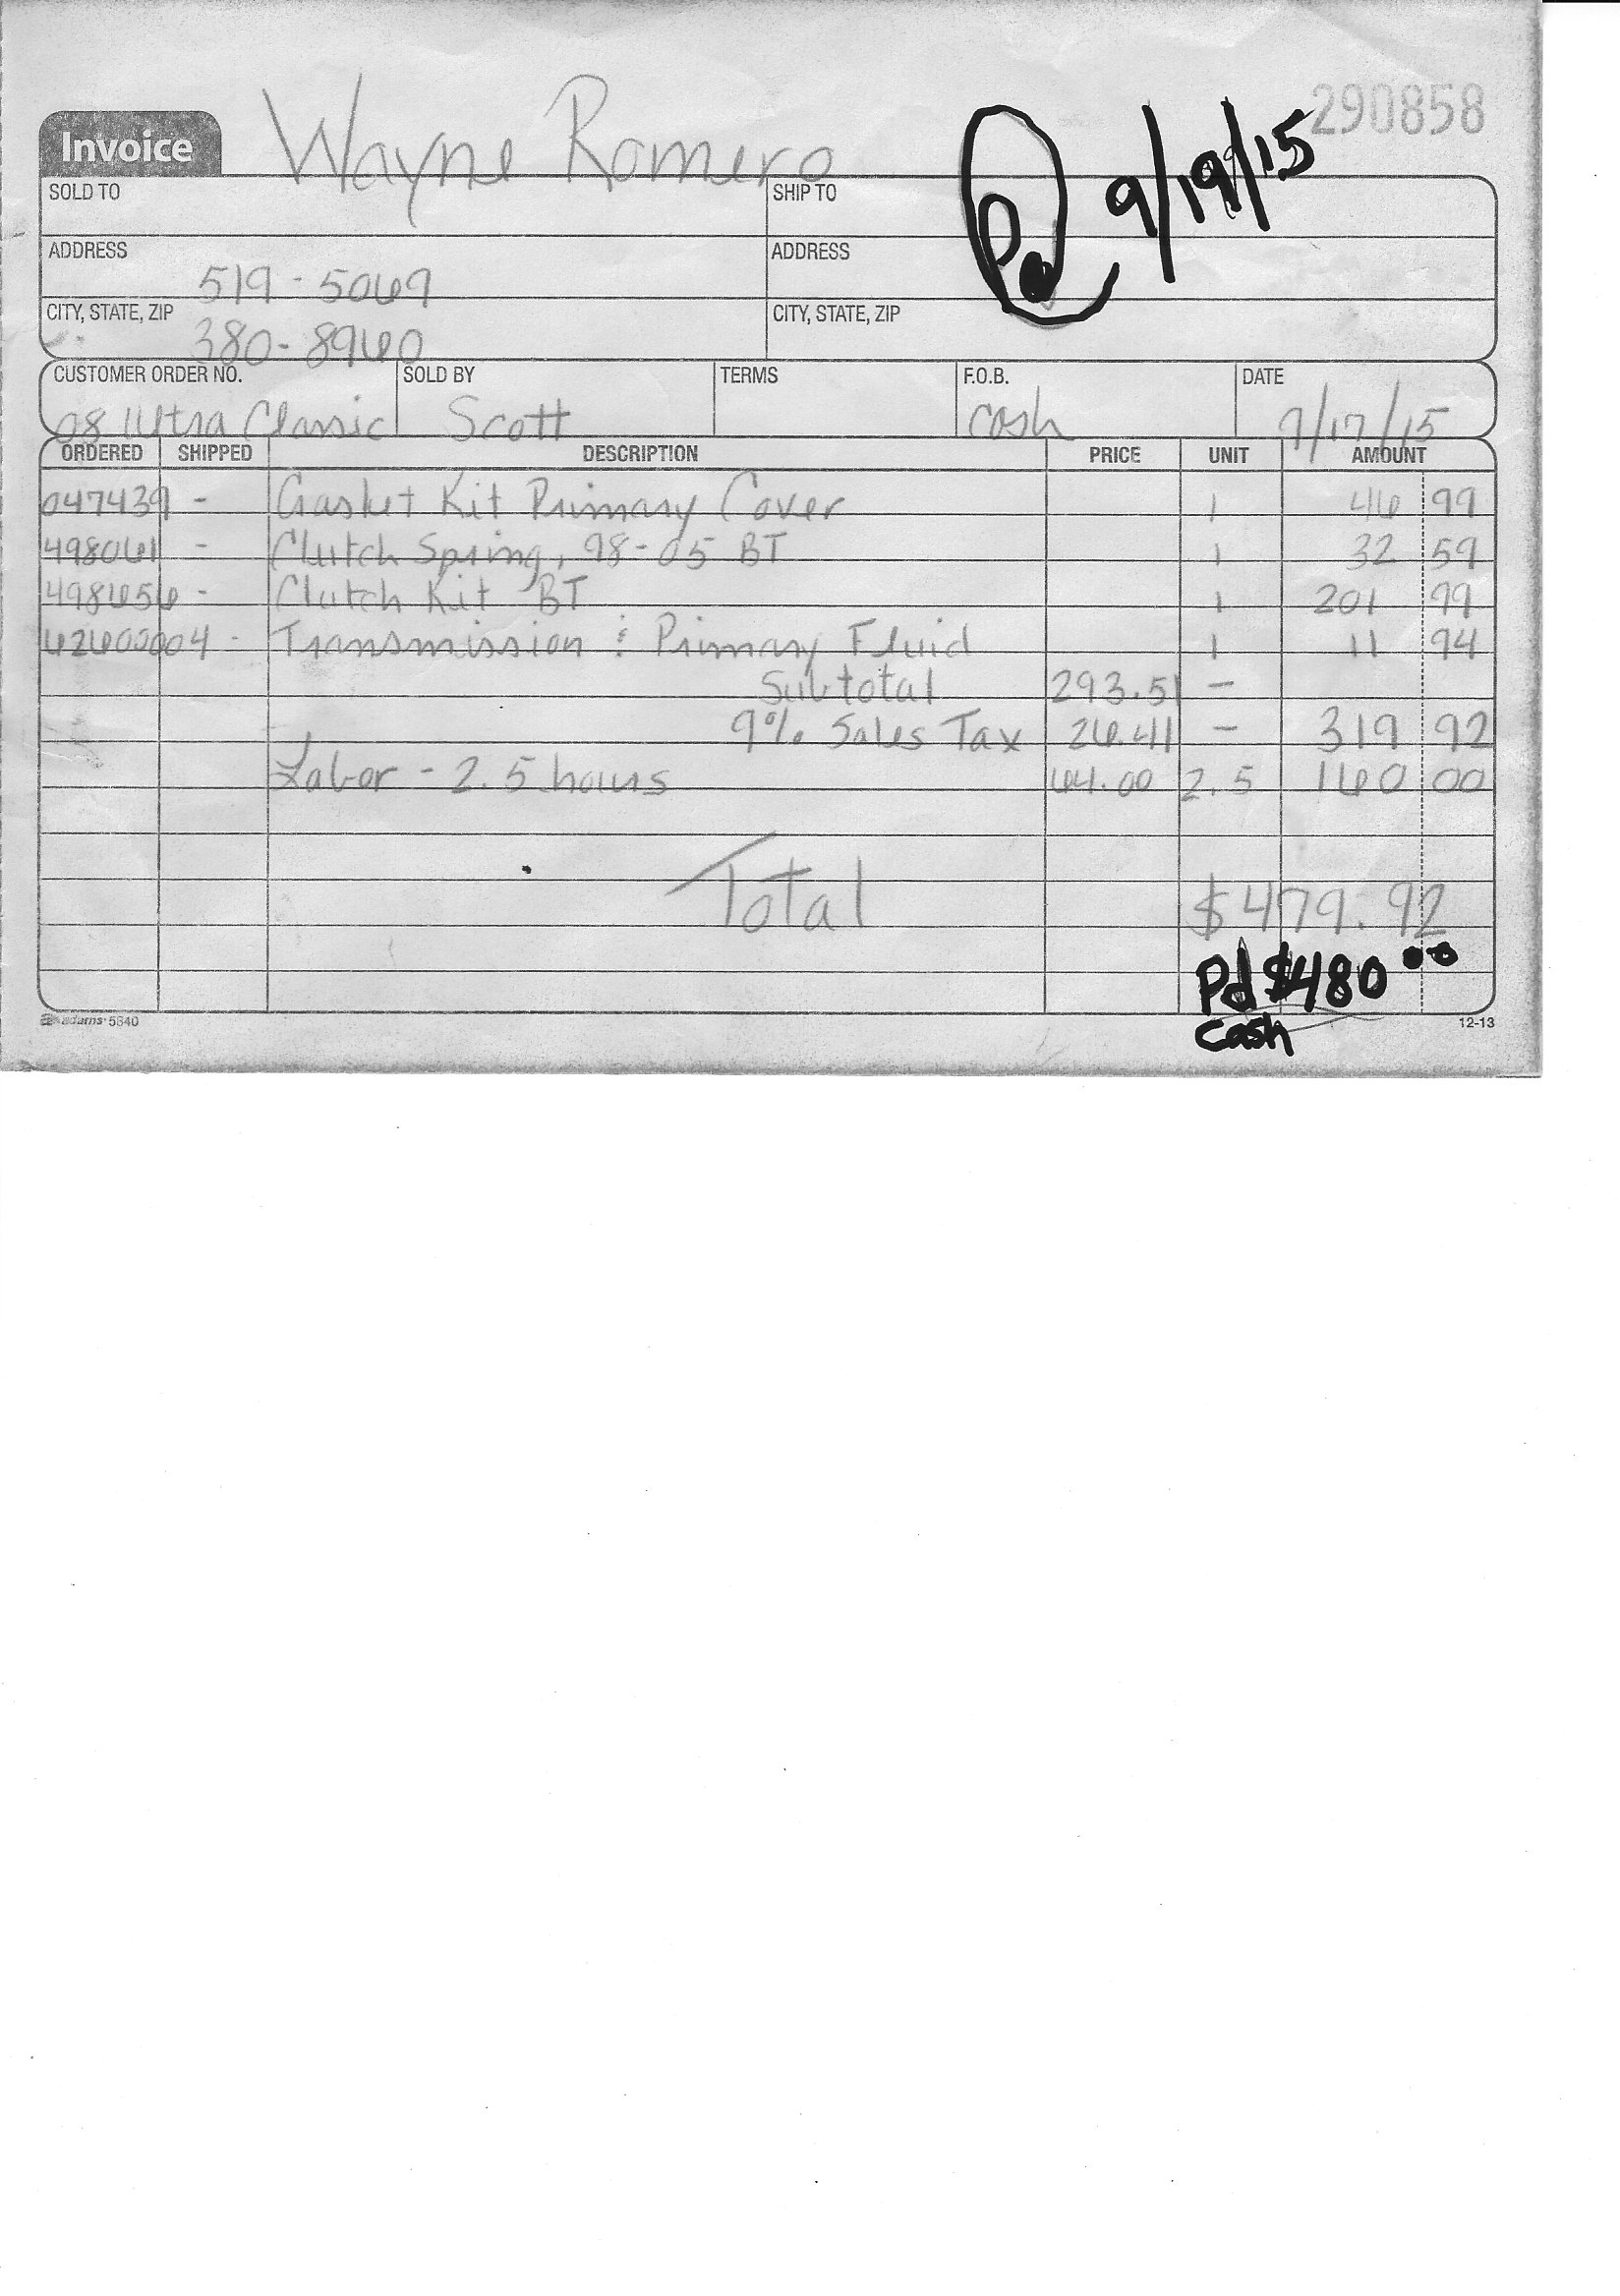 290858
Invoice Wayne Romero
Pd 9/19/15
SOLD TO SHIP TO
ADDRESS ADDRESS
519-5069
CITY, STATE, ZIP CITY, STATE, ZIP
380-8960
CUSTOMER ORDER NO. SOLD BY TERMS F.O.B. DATE
08 Ultra Classic Scott cash 9/17/15
ORDERED SHIPPED DESCRIPTION PRICE UNIT AMOUNT
047439 - Gasket Kit Primary Cover 1 46 99
498061 - Clutch Spring, 98-05 BT 1 32 59
498656 - Clutch Kit BT 1 201 99
62600004 - Transmission & Primary Fluid 1 11 94
Subtotal 293.51 -
9% Sales Tax 26.41 - 319 92
Labor - 2.5 hours 64.00 2.5 160 00
Total $479.92
Pd $480 00
cash
adams 5840 12-13